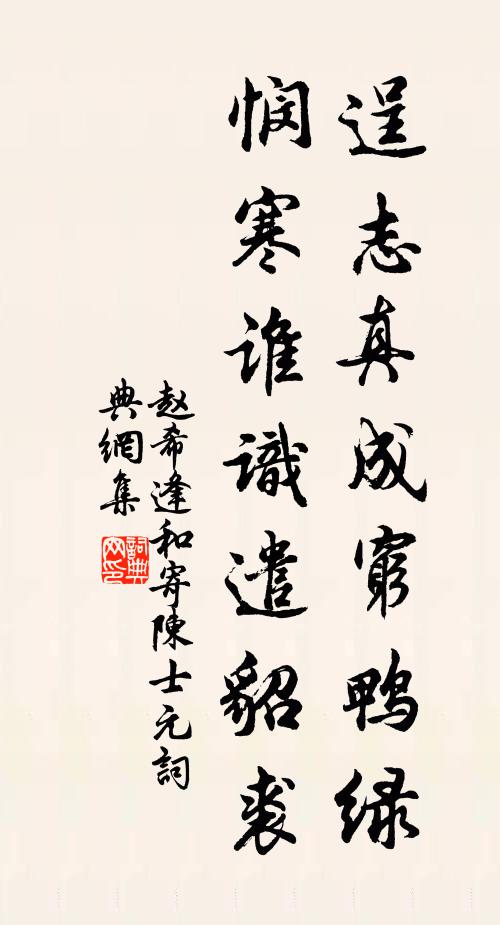 逞志真成窮鴨緑
憫寒誰識遣貂裘
赵希逢和寄陳士元詞
典網集
詞典
网印